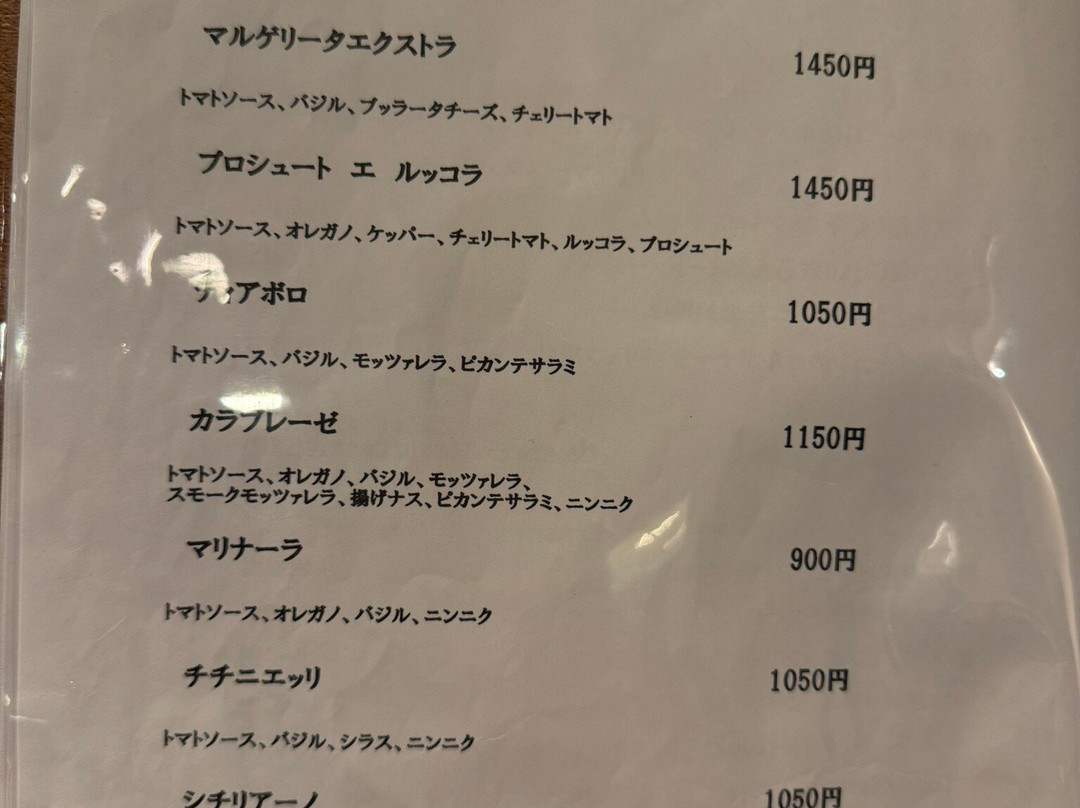 マルゲリータエクストラ 1450円
トマトソース、バジル、ブッラータチーズ、チェリートマト
プロシュート エ ルッコラ 1450円
トマトソース、オレガノ、ケッパー、チェリートマト、ルッコラ、プロシュート
ディアボロ 1050円
トマトソース、バジル、モッツァレラ、ピカンテサラミ
カラブレーゼ 1150円
トマトソース、オレガノ、バジル、モッツァレラ、
スモークモッツァレラ、揚げナス、ピカンテサラミ、ニンニク
マリナーラ 900円
トマトソース、オレガノ、バジル、ニンニク
チチニエッリ 1050円
トマトソース、バジル、シラス、ニンニク
シチリアーノ 1050円